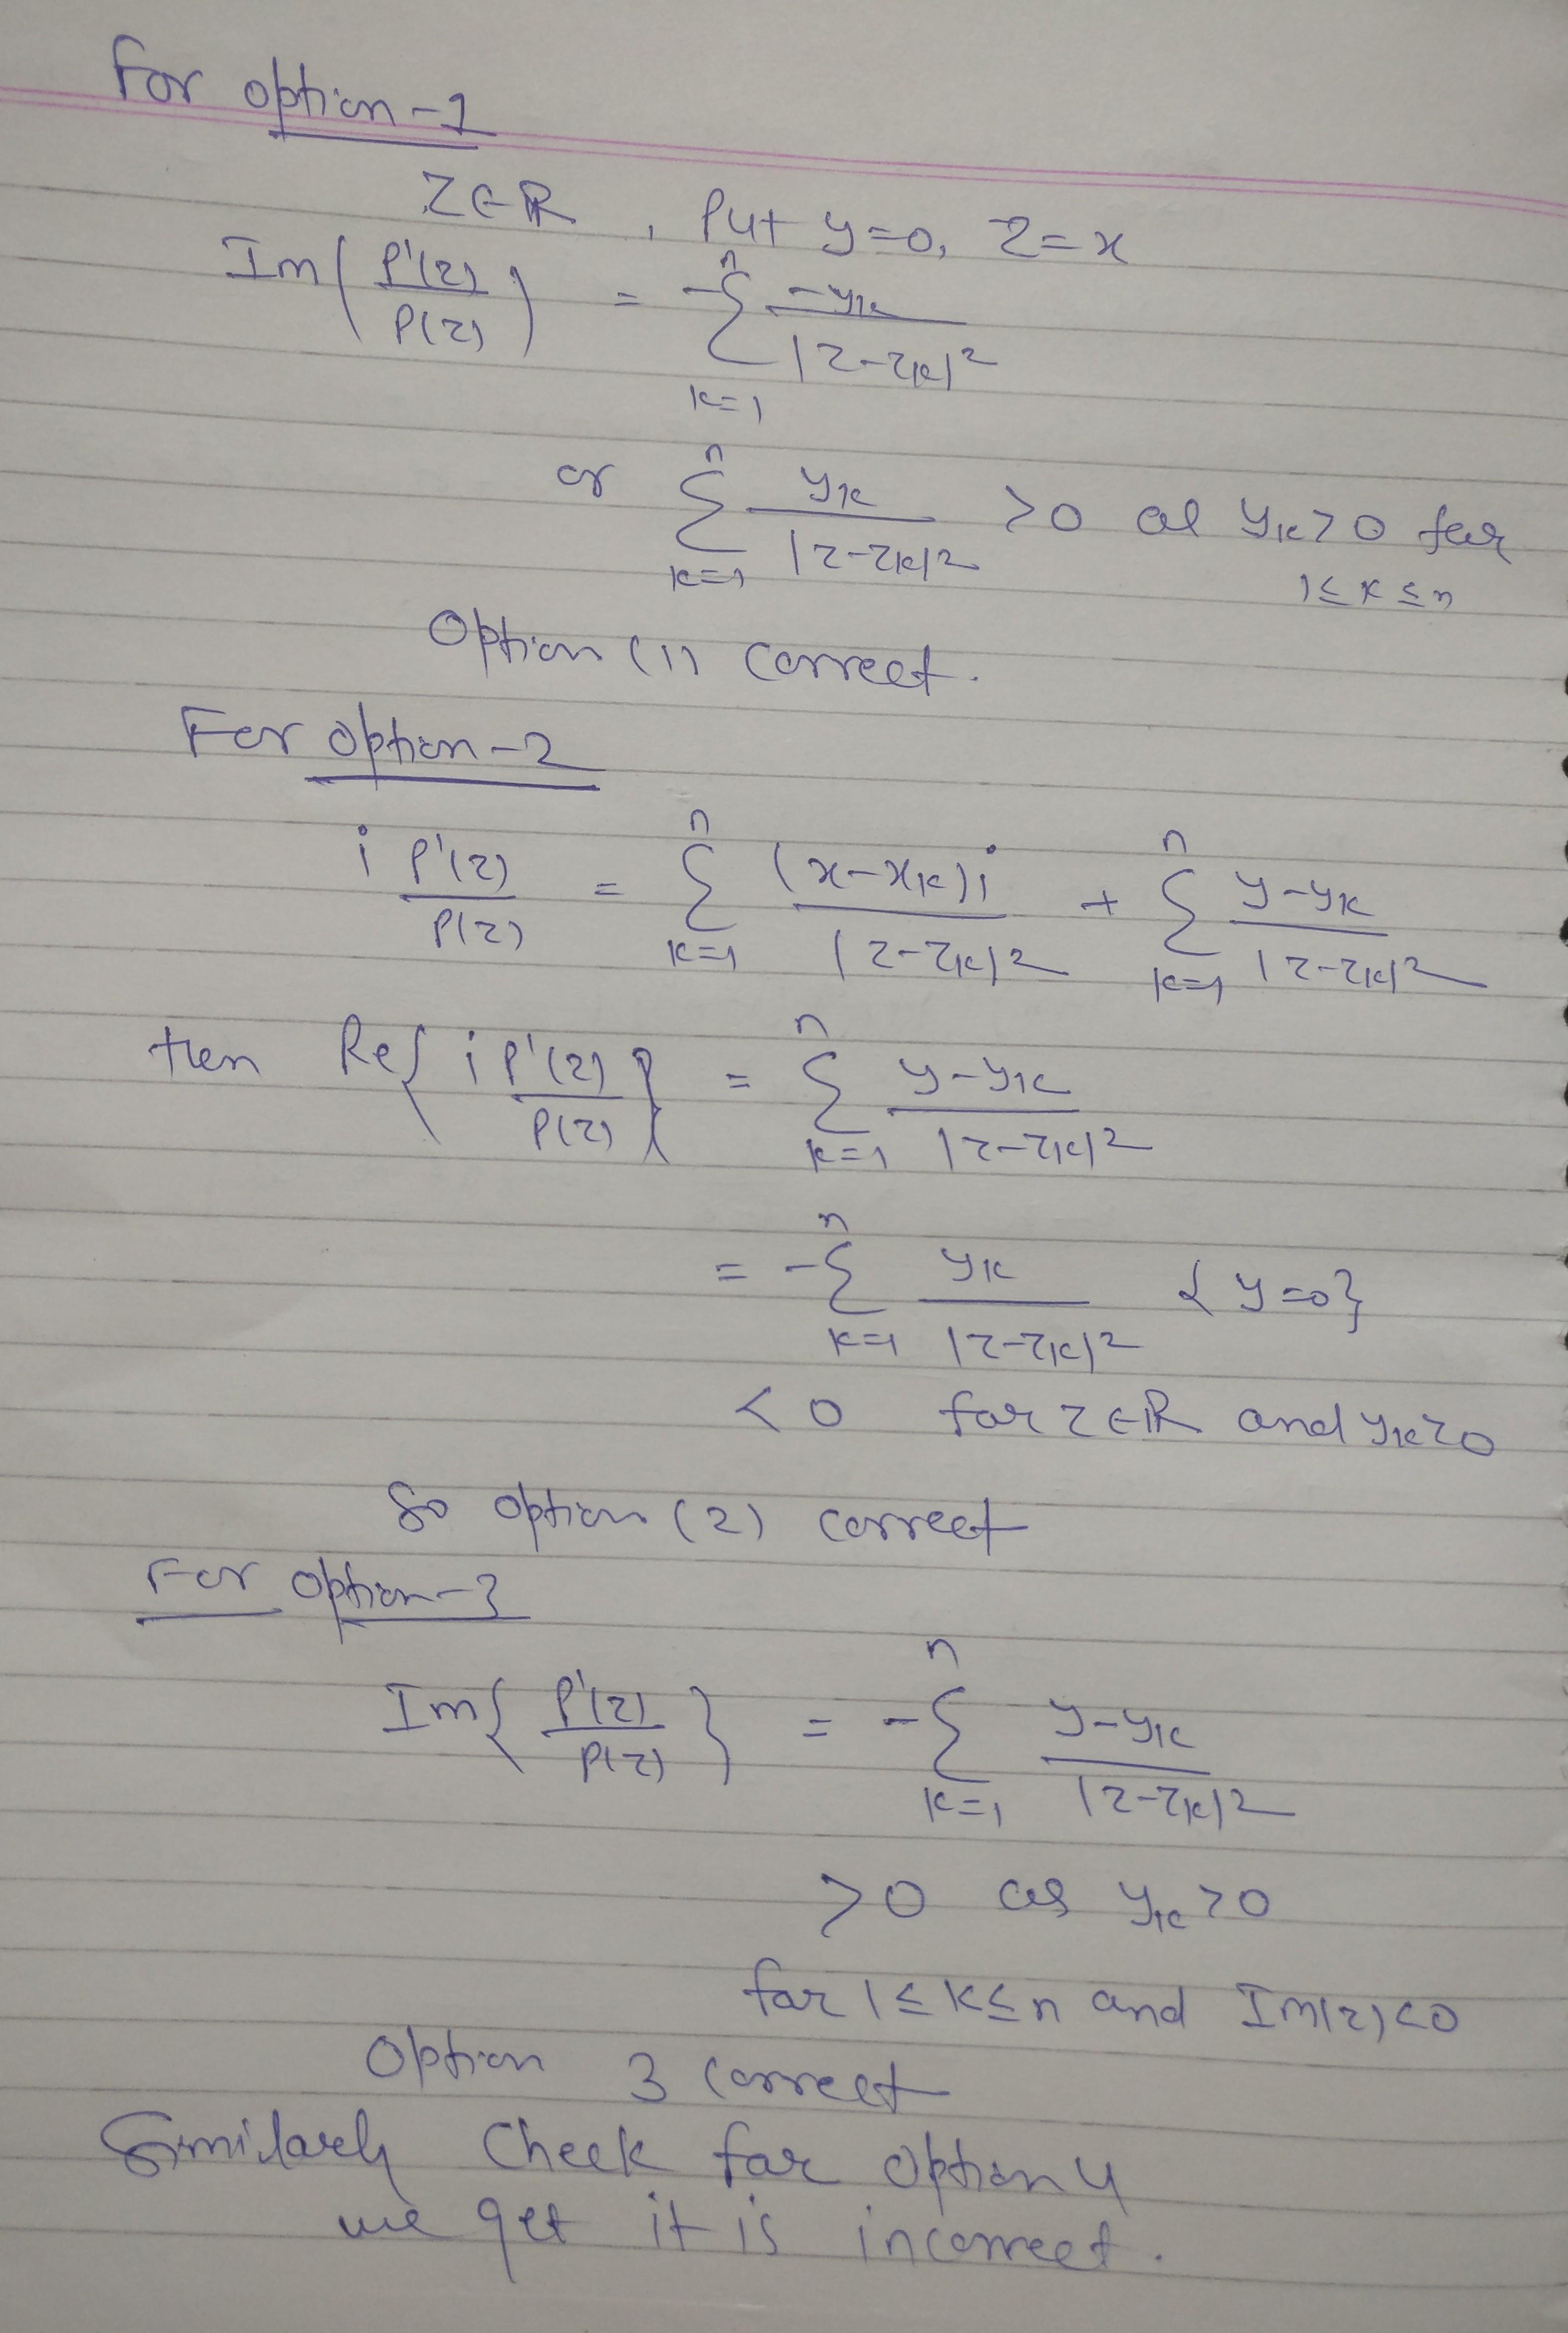 For option-1
Z∈R , Put y=0, z=x
Im(P'(z)/P(z)) = -∑_{k=1}^{n} -yk/|z-zk|²
or ∑_{k=1}^{n} yk/|z-zk|² >0 as yk>0 for
1≤k≤n
Option (1) correct.
For option-2
i P'(z)/P(z) = ∑_{k=1}^{n} (x-xk)i/|z-zk|² + ∑_{k=1}^{n} y-yk/|z-zk|²
then Re{i P'(z)/P(z)} = ∑_{k=1}^{n} y-yk/|z-zk|²
= -∑_{k=1}^{n} yk/|z-zk|² {y=0}
<0 for z∈R and yk>0
So option (2) correct
For option-3
Im{P'(z)/P(z)} = -∑_{k=1}^{n} y-yk/|z-zk|²
>0 as yk>0
for 1≤k≤n and Im(z)<0
Option 3 correct
Similarly Check for option 4
we get it is incorrect.